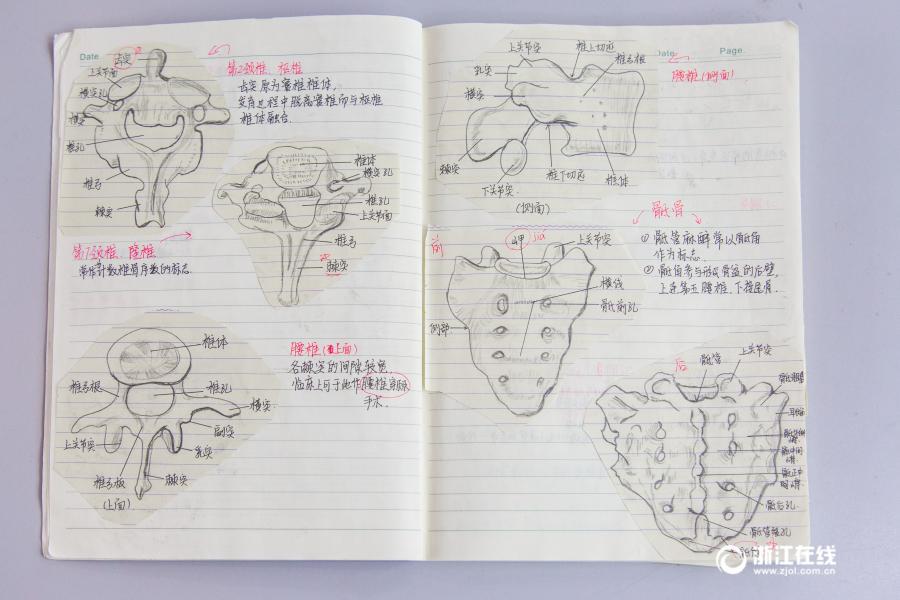 Date
齿突
上关节面
横突孔
横突
椎孔
椎弓
棘突
第2颈椎、枢椎
齿突原为寰椎椎体,
发育过程中脱离寰椎而与枢椎
椎体融合.
椎体
横突孔
椎孔
上关节面
椎弓
棘突
第7颈椎、隆椎
常作计数椎骨序数的标志.
椎体
椎弓根
椎孔
横突
上关节突
副突
乳突
椎弓板
棘突
(上面)
腰椎(上面)
各棘突的间隙较宽
临床上可于此作腰椎穿刺
手术.
Date
Page.
上关节突
椎上切迹
椎弓根
乳突
横突
棘突
下关节突
椎下切迹
椎体
(侧面)
腰椎(侧面)
骶骨
① 骶管麻醉常以骶角
作为标志.
② 骶骨参与形成骨盆的后壁,
上连第五腰椎、下接尾骨.
前
岬 jiǎ
上关节突
横线
骶前孔
侧部
后
骶管
上关节突
骶粗隆
耳状面
骶外侧
嵴
骶中间
嵴
骶正中
嵴
骶后孔
骶管裂孔
浙江在线
www.zjol.com.cn